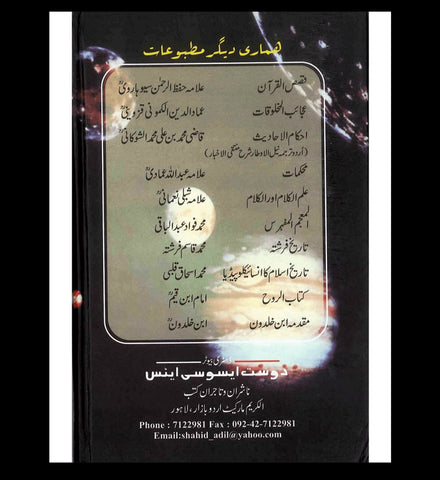 ہماری دیگر مطبوعات
قصص القرآن علامہ حفظ الرحمٰن سیوہاروی
عجائب المخلوقات عماد الدین الکمونی قزوینی
احکام الاحادیث قاضی محمد بن علی محمد الشوکانی
(اُردو ترجمہ نیل الاوطار شرح منتقی الاخبار)
محکمات علامہ عبداللہ عمادی
علم الکلام اور الکلام علامہ شبلی نعمانی
المعجم المفہرس محمد فواد عبدالباقی
تاریخ فرشتہ محمد قاسم فرشتہ
تاریخ اسلام کا انسائیکلوپیڈیا محمد اسحاق قلبی
کتاب الروح امام ابن قیم
مقدمہ ابن خلدون ابن خلدون
ڈسٹری بیوٹر
دوست ایسوسی ایٹس
ناشران و تاجران کتب
الکریم مارکیٹ اردو بازار، لاہور
Phone : 7122981 Fax : 092-42-7122981
Email:shahid_adil@yahoo.com